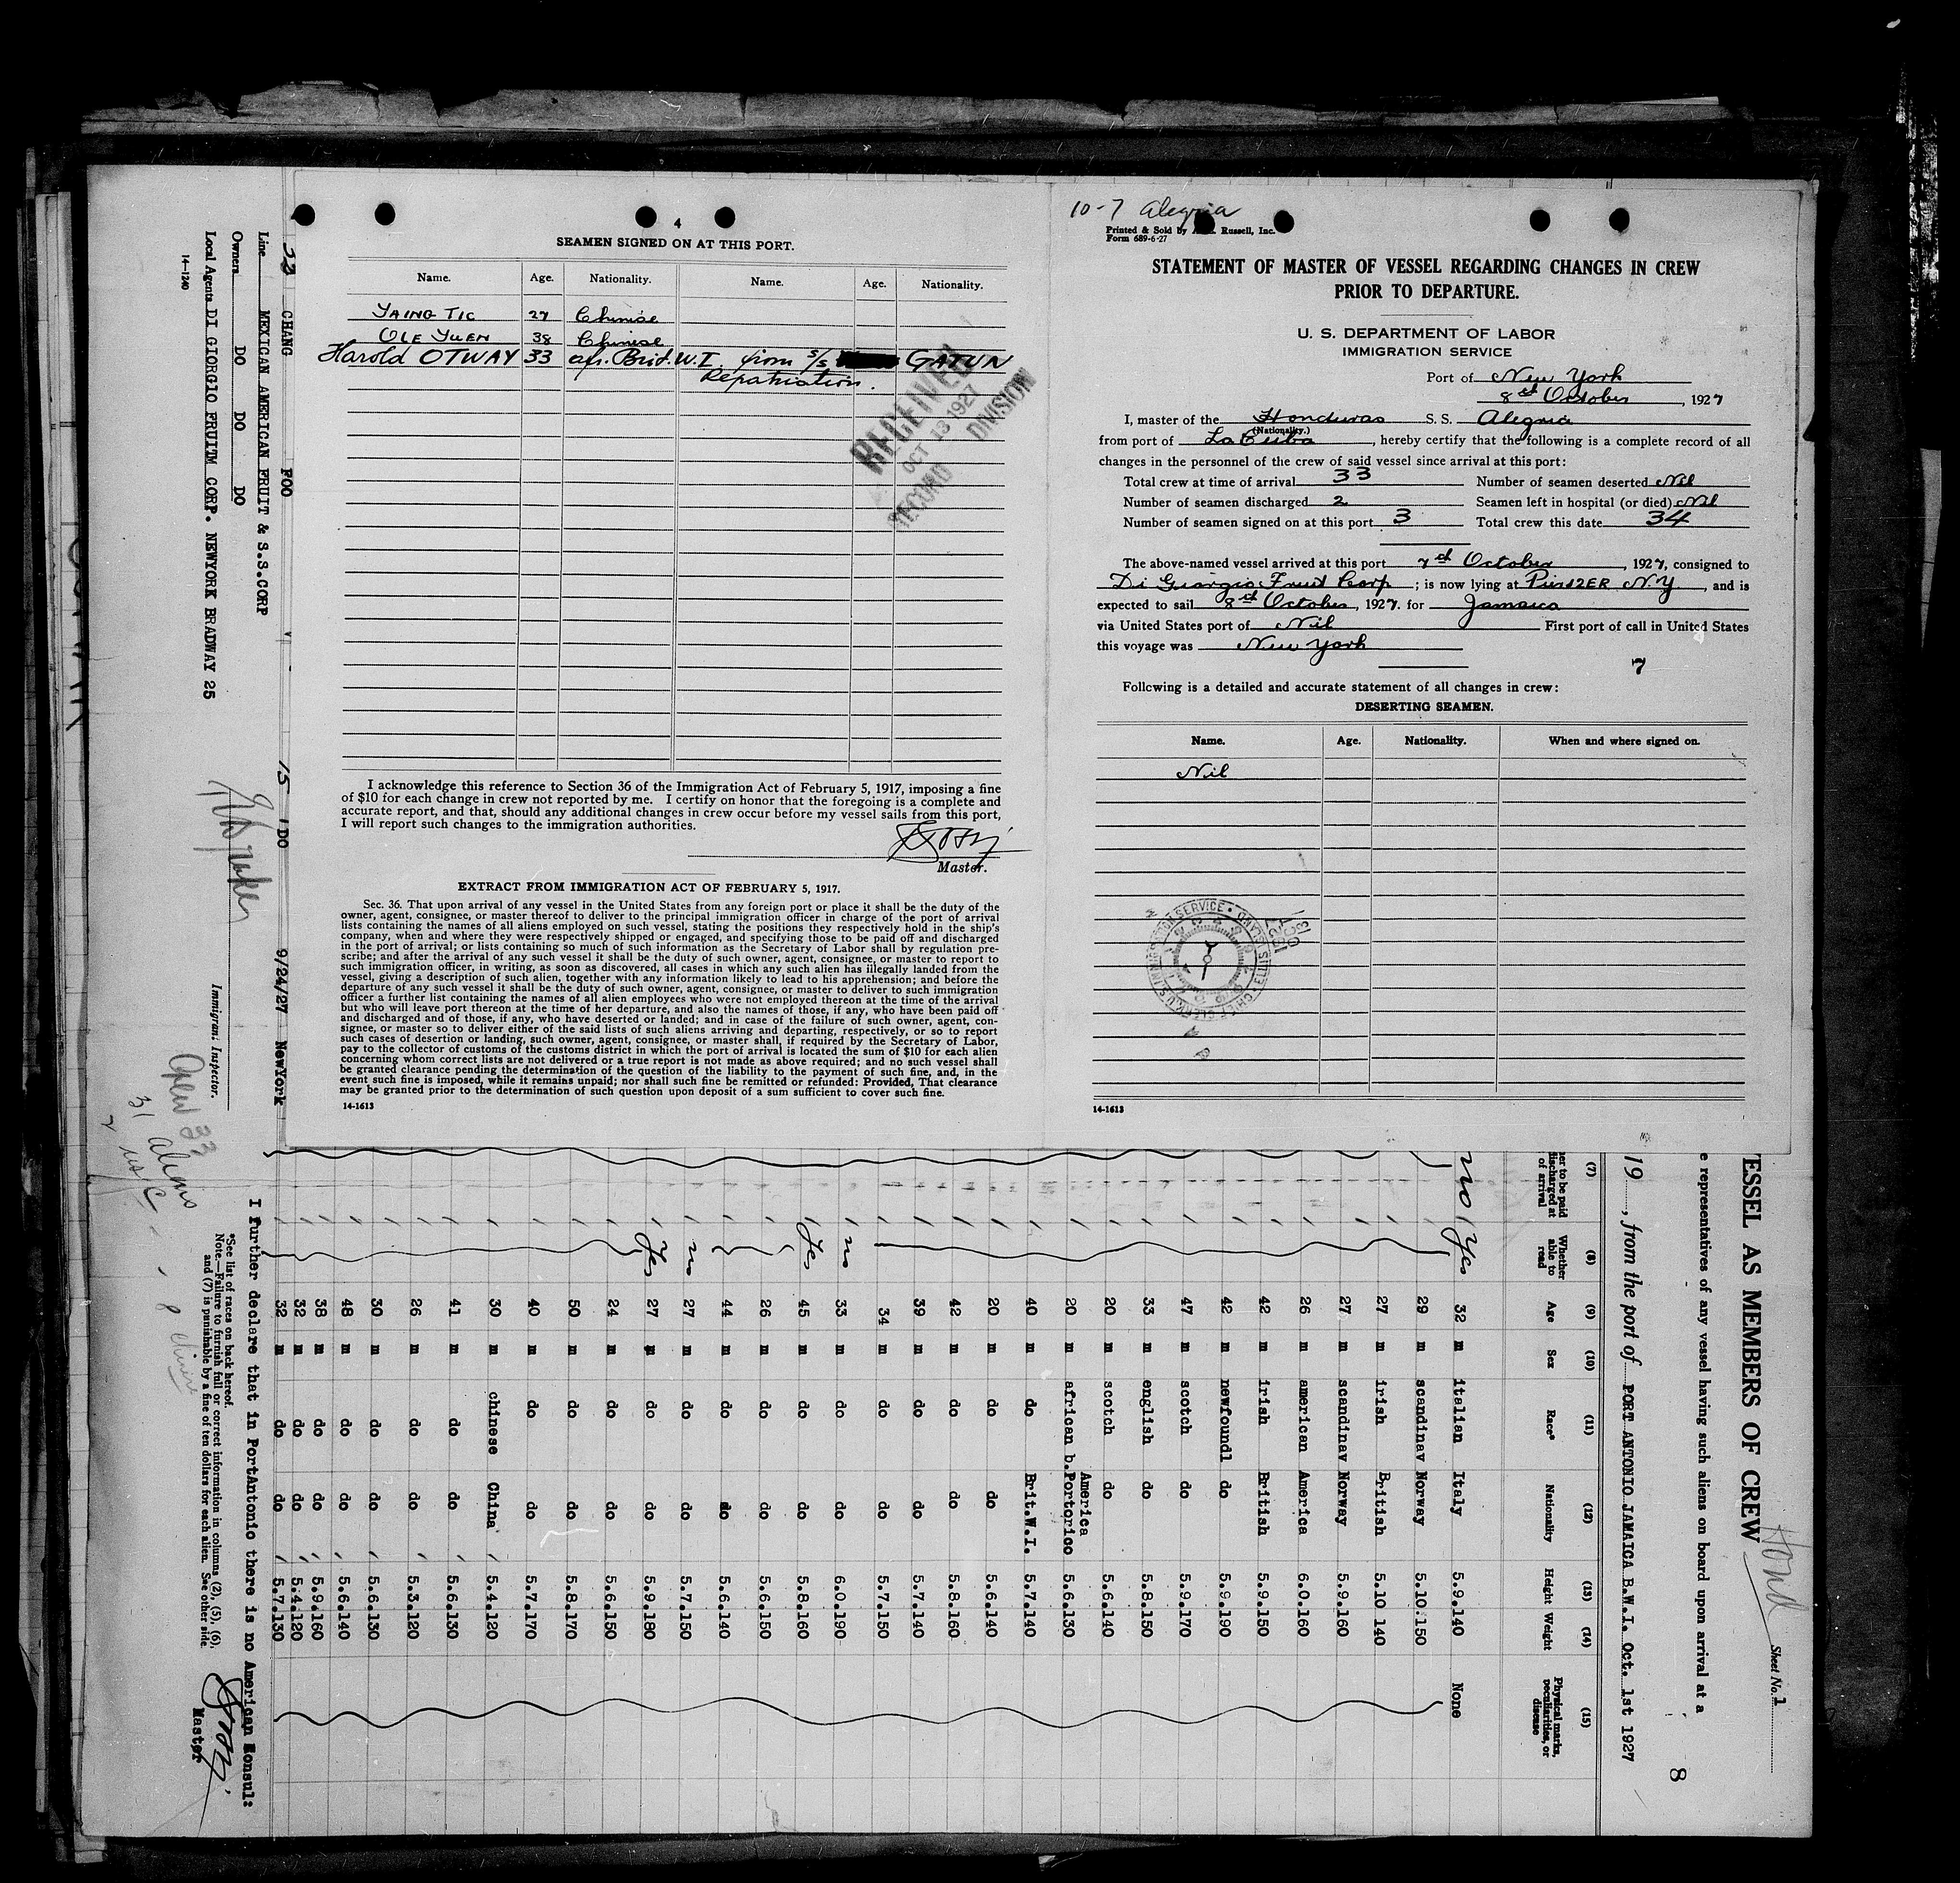 4
SEAMEN SIGNED ON AT THIS PORT.
Name. Age. Nationality. Name. Age. Nationality.
YAING TIC 27 Chinise
OLE YUEN 38 Chinise
Harold OTWAY 33 afr. Brit. W. I. from s/s GATUN
Repatriation.
RECEIVED
OCT 13 1927
RECORD DIVISION
I acknowledge this reference to Section 36 of the Immigration Act of February 5, 1917, imposing a fine
of $10 for each change in crew not reported by me. I certify on honor that the foregoing is a complete and
accurate report, and that, should any additional changes in crew occur before my vessel sails from this port,
I will report such changes to the immigration authorities.
Master.
EXTRACT FROM IMMIGRATION ACT OF FEBRUARY 5, 1917.
Sec. 36. That upon arrival of any vessel in the United States from any foreign port or place it shall be the duty of the
owner, agent, consignee, or master thereof to deliver to the principal immigration officer in charge of the port of arrival
lists containing the names of all aliens employed on such vessel, stating the positions they respectively hold in the ship's
company, when and where they were respectively shipped or engaged, and specifying those to be paid off and discharged
in the port of arrival; or lists containing so much of such information as the Secretary of Labor shall by regulation pre-
scribe; and after the arrival of any such vessel it shall be the duty of such owner, agent, consignee, or master to report to
such immigration officer, in writing, as soon as discovered, all cases in which any such alien has illegally landed from the
vessel, giving a description of such alien, together with any information likely to lead to his apprehension; and before the
departure of any such vessel it shall be the duty of such owner, agent, consignee, or master to deliver to such immigration
officer a further list containing the names of all alien employees who were not employed thereon at the time of the arrival
but who will leave port thereon at the time of her departure, and also the names of those, if any, who have been paid off
and discharged and of those, if any, who have deserted or landed; and in case of the failure of such owner, agent, con-
signee, or master so to deliver either of the said lists of such aliens arriving and departing, respectively, or so to report
such cases of desertion or landing, such owner, agent, consignee, or master shall, if required by the Secretary of Labor,
pay to the collector of customs of the customs district in which the port of arrival is located the sum of $10 for each alien
concerning whom correct lists are not delivered or a true report is not made as above required; and no such vessel shall
be granted clearance pending the determination of the question of the liability to the payment of such fine, and, in the
event such fine is imposed, while it remains unpaid; nor shall such fine be remitted or refunded: Provided, That clearance
may be granted prior to the determination of such question upon deposit of a sum sufficient to cover such fine.
14-1613
10-7 Alegria
Printed & Sold by Russell, Inc.
Form 689-6-27
STATEMENT OF MASTER OF VESSEL REGARDING CHANGES IN CREW
PRIOR TO DEPARTURE.
U. S. DEPARTMENT OF LABOR
IMMIGRATION SERVICE
Port of New York
8th October, 1927
I, master of the Honduras S. S. Alegria
(Nationality.)
from port of La Ceiba, hereby certify that the following is a complete record of all
changes in the personnel of the crew of said vessel since arrival at this port:
Total crew at time of arrival 33 Number of seamen deserted Nil
Number of seamen discharged 2 Seamen left in hospital (or died) Nil
Number of seamen signed on at this port 3 Total crew this date 34
The above-named vessel arrived at this port 7th October, 1927, consigned to
Di Giorgio Fruit Corp; is now lying at Pier 12ER N.Y, and is
expected to sail 8th October, 1927. for Jamaica
via United States port of Nil First port of call in United States
this voyage was New York
7
Following is a detailed and accurate statement of all changes in crew:
DESERTING SEAMEN.
Name. Age. Nationality. When and where signed on.
Nil
14-1613
ESSEL AS MEMBERS OF CREW
Hond
Sheet No. 1
e representatives of any vessel having such aliens on board upon arrival at a
8
19, from the port of PORT ANTONIO JAMAICA B.W.I. Oct. 1st 1927
(7) (8) (9) (10) (11) (12) (13) (14) (15)
her to be paid discharged at of arrival Whether able to read Age Sex Race* Nationality Height Weight Physical marks, peculiarities, or disease
no Yes 32 m italian Italy 5.9.140 None
29 m scandinav Norway 5.10.150
27 m irish British 5.10 140
27 m scandinav Norway 5.9.160
26 m american America 6.0.160
42 m irish British 5.9.150
42 m newfoundl do 5.9.190
47 m scotch do 5.9.170
33 m english do 5.8.150
20 m scotch do 5.6.140
20 m african b. America Portorico 5.6.130
40 m do Brit.W.I. 5.7.140
20 m do do 5.6.140
42 m do do 5.8.160
39 m do do 5.7.140
34 m do do 5.7.150
no 33 m do do 6.0.190
Yes 45 m do do 5.8.160
26 m do do 5.6.150
44 m do do 5.6.140
no 27 m do do 5.7.150
Yes 27 m do do 5.9.180
24 m do do 5.6.150
50 m do do 5.8.170
40 m do do 5.7.170
30 m chinese China 5.4.120
41 m do do 5.6.130
26 m do do 5.3.120
30 m do do 5.6.130
48 m do do 5.6.140
38 m do do 5.9.160
32 m do do 5.4.120
33 CHANG FOO 15 DO 9/24/27 NewYork 32 m do do 5.7.130
I further declare that in PortAntonio there is no American Konsul:
Line MEXICAN AMERICAN FRUIT & S.S.CORP
Owners DO DO DO
Local Agents DI GIORGIO FRUITM CORP. NEWYORK BRADWAY 25
14-1240
Immigrant Inspector.
*See list of races on back hereof.
Note.—Failure to furnish full or correct information in columns (2), (5), (6),
and (7) is punishable by a fine of ten dollars for each alien. See other side.
Master
Crew 33
31 aliens
2 US C
8 chinese